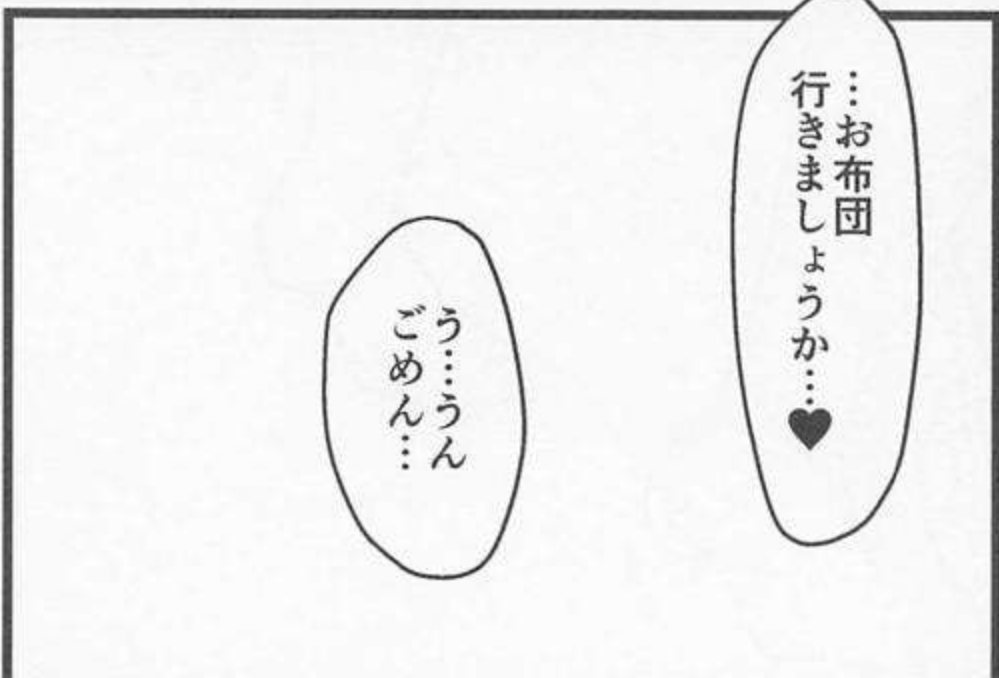 …お布団
行きましょうか…♥
う…うん
ごめん…